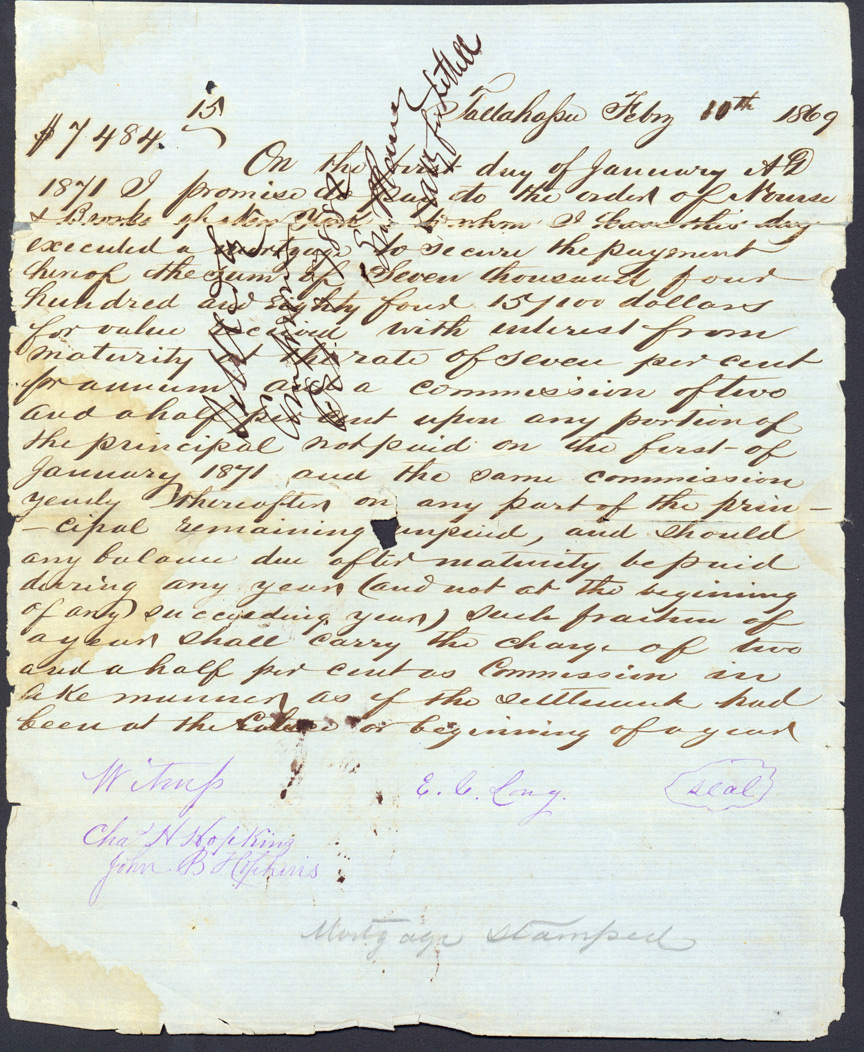 Tallahassee Febry 10th 1869
$7484. 15
On the first day of January AD
1871 I promise to pay to the order of Nourse
& Brooks of New York to whom I have this day
executed a mortgage to secure the payment
hereof the sum of Seven thousand four
hundred and Eighty four 15/100 dollars
for value received with interest from
maturity at the rate of seven per cent
pr annum and a commission of two
and a half per cent upon any portion of
the principal not paid on the first of
January 1871 and the same commission
yearly thereafter on any part of the prin-
-cipal remaining unpaid, and should
any balance due after maturity be paid
during any year (and not at the begining
of any succeeding year) such fraction of
a year shall carry the charge of two
and a half per cent as Commission in
like manner as if the settlement had
been at the close or beginning of a year
Witness
E. C. Long.
Seal
Chas H Hopkins
John B Hopkins
Mortgage Stamped